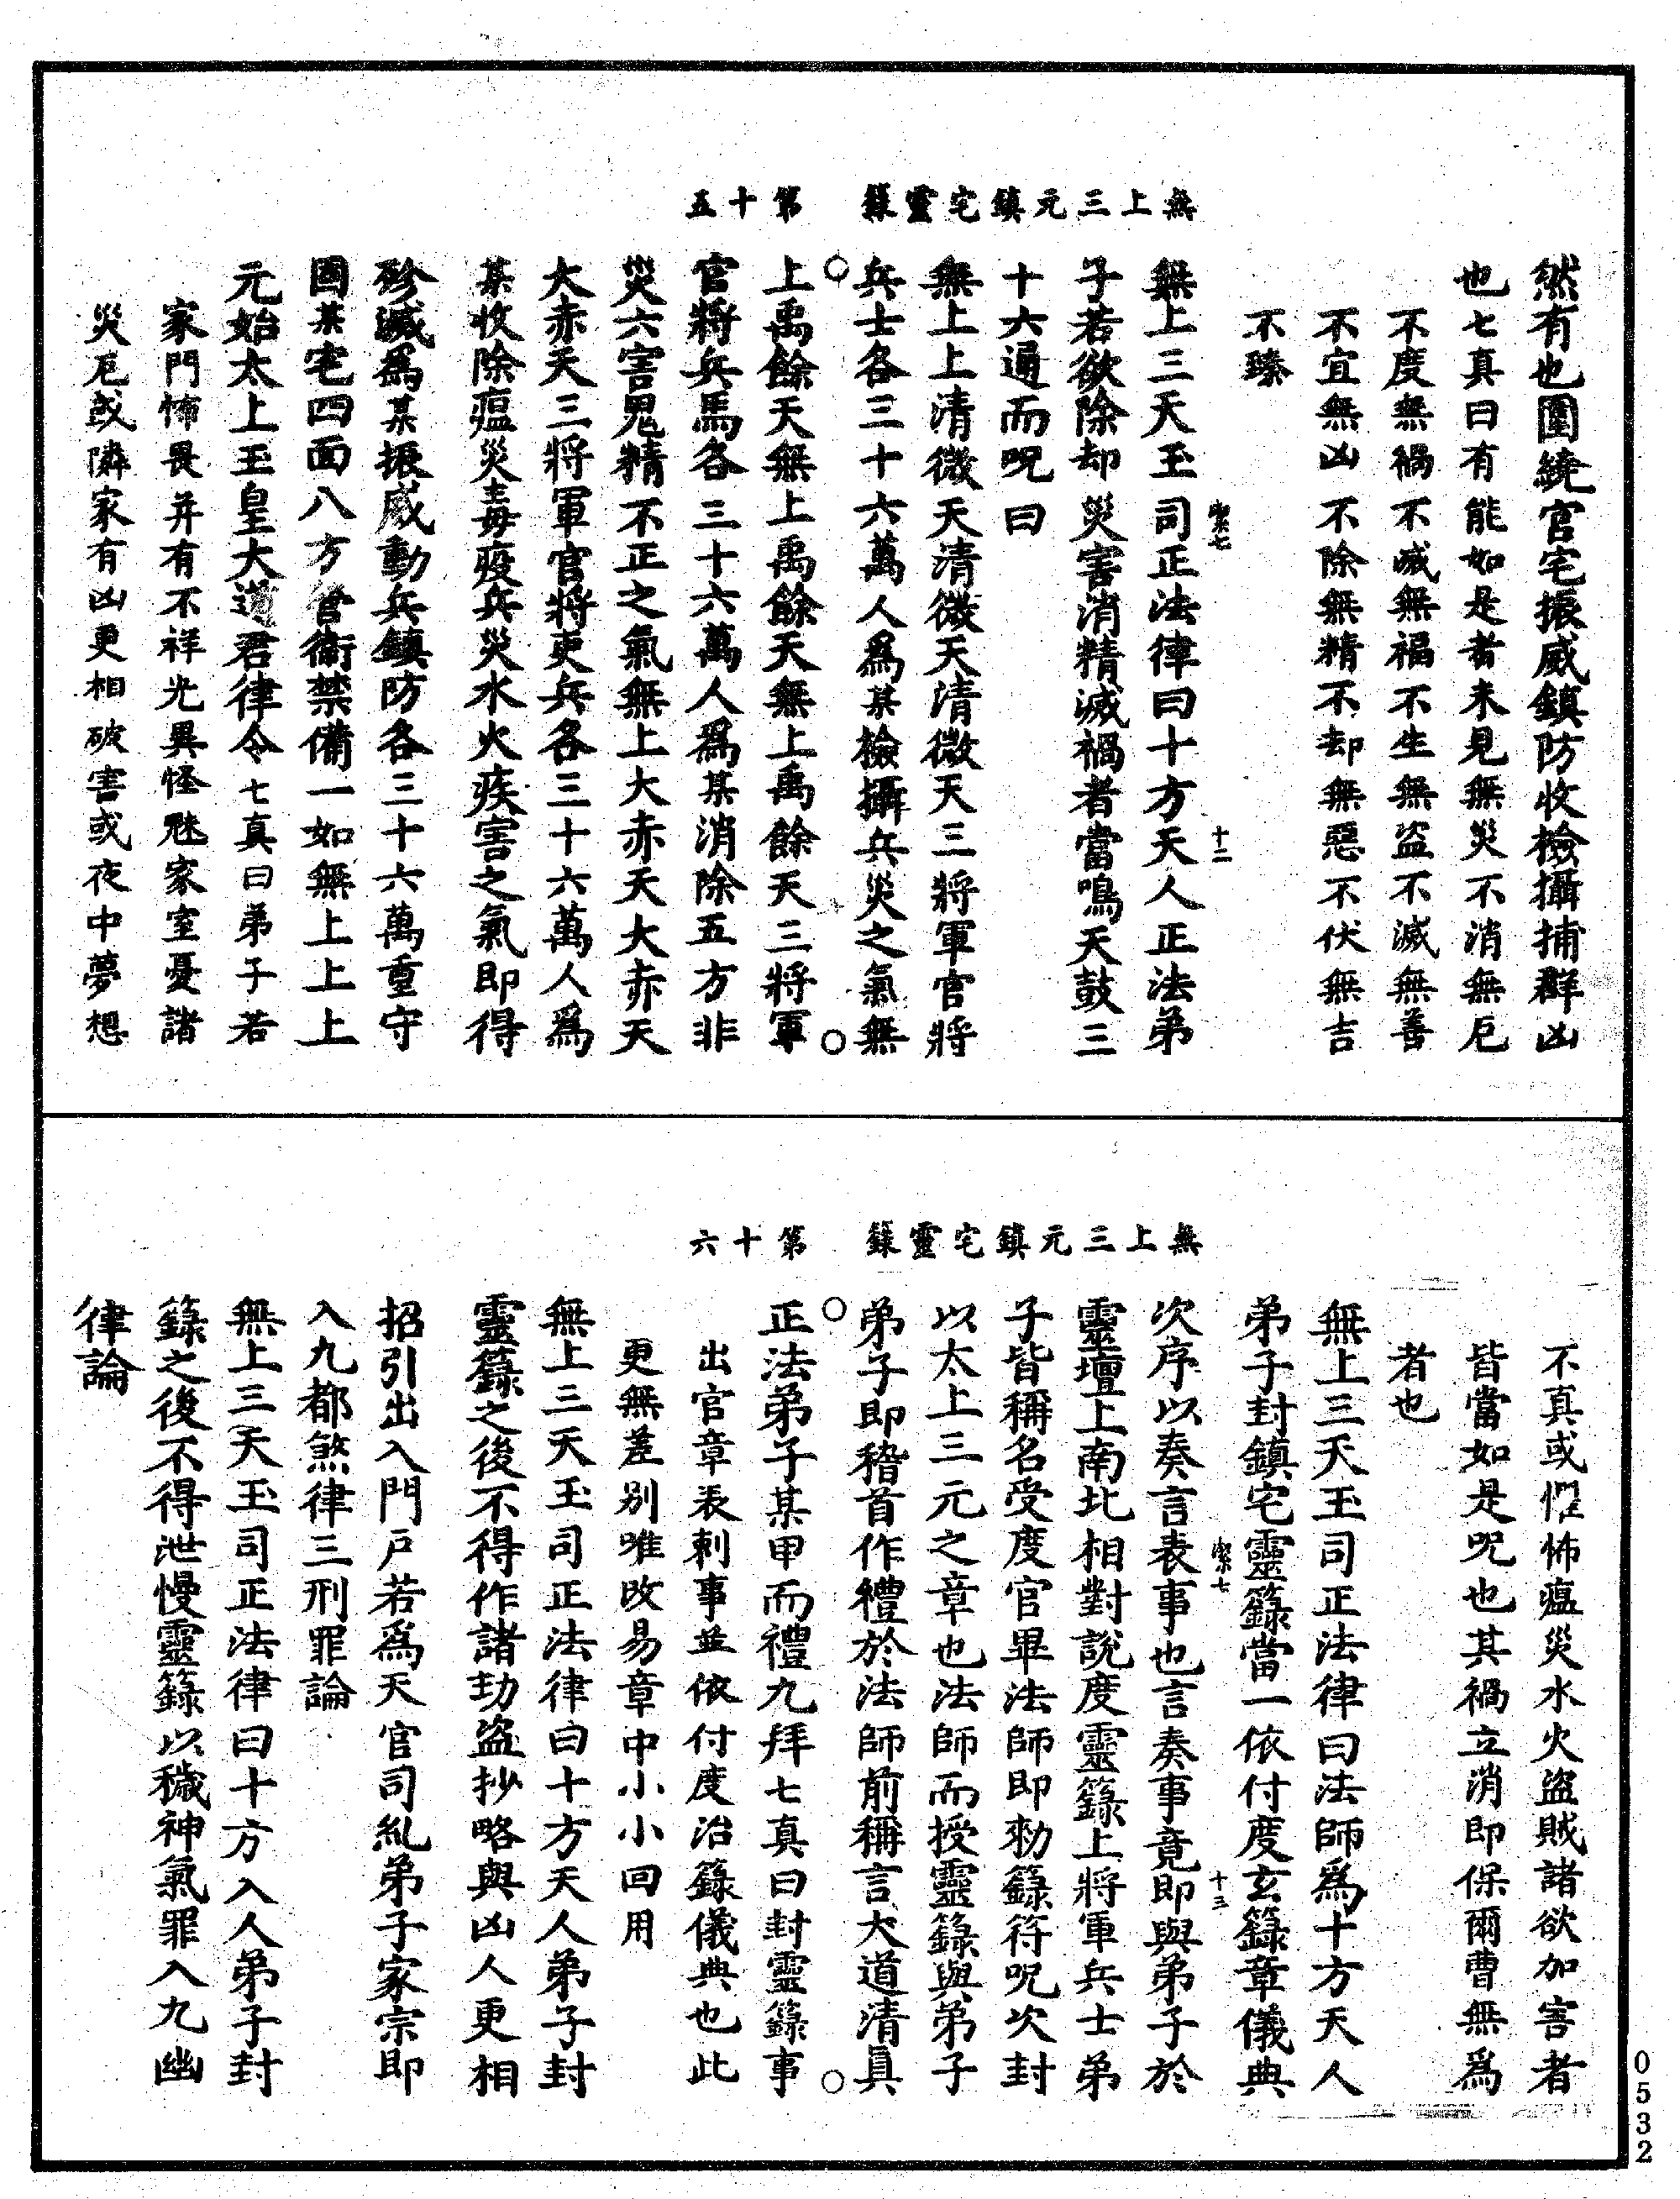 無上三元鎮宅靈籙　第十五
然有也圍繞官宅振威鎮防收檢攝捕群凶
也七真曰有能如是者未見無災不消無厄
不度無禍不滅無福不生無盜不滅無善
不宜無凶不除無精不却無惡不伏無吉
不臻
無上三天玉司正法律曰十方天人正法弟
子若欲除却災害消精滅禍者當鳴天鼓三
十六通而呪曰
無上上清微天清微天清微天三將軍官將
兵士各三十六萬人爲某檢攝兵災之氣無
上禹餘天無上禹餘天無上禹餘天三將軍
官將兵馬各三十六萬人爲某消除五方非
災六害鬼精不正之氣無上大赤天大赤天
大赤天三將軍官將吏兵各三十六萬人爲
某收除瘟災毒疫兵災水火疾害之氣即得
殄滅爲某振威動兵鎮防各三十六萬重守
固某宅四面八方營衛禁備一如無上上上
元始太上玉皇大道君律令七真曰弟子若
家門怖畏并有不祥光異怪魅家室憂諸
災厄或隣家有凶更相破害或夜中夢想
十二
無上三元鎮宅靈籙　第十六
不真或惟怖瘟災水火盜賊諸欲加害者
皆當如是呪也其禍立消即保爾曹無爲
者也
無上三天玉司正法律曰法師爲十方天人
弟子封鎮宅靈籙當一依付度玄籙章儀典
次序以奏言表事也言奏事竟即與弟子於
靈壇上南北相對說度靈籙上將軍兵士弟
子皆稱名受度官畢法師即勑籙符呪次封
以太上三元之章也法師而授靈籙與弟子
弟子即稽首作禮於法師前稱言大道清真
正法弟子某甲而禮九拜七真曰封靈籙事
出官章表刺事並依付度治籙儀典也此
更無差別唯改易章中小小回用
無上三天玉司正法律曰十方天人弟子封
靈籙之後不得作諸劫盜抄略與凶人更相
招引出入門戶若爲天官司糺弟子家宗即
入九都煞律三刑罪論
無上三天玉司正法律曰十方入人弟子封
籙之後不得泄慢靈籙以穢神氣罪入九幽
律論
十三
0532